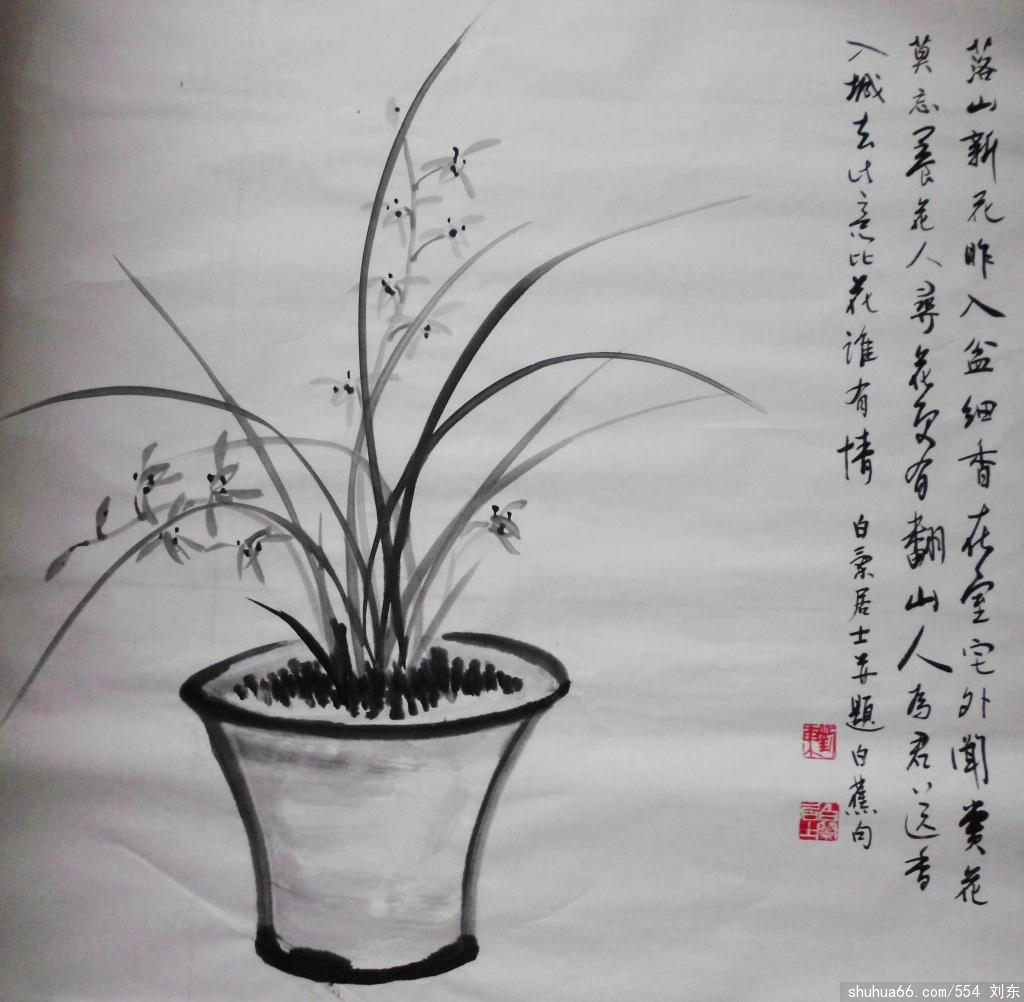 落山新花昨入盆細香在室宅外聞賞花
莫忘養花人尋花更有翻山人為君送香
入城去此意比花誰有情 白居士并題 白蕉句
劉東
shuhua66.com/554 刘东